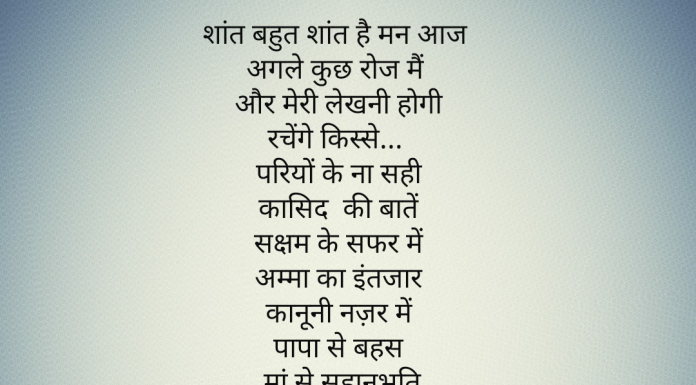 शांत बहुत शांत है मन आज
अगले कुछ रोज मैं
और मेरी लेखनी होगी
रचेंगे किस्से...
परियों के ना सही
कासिद की बातें
सक्षम के सफर में
अम्मा का इंतजार
कानूनी नज़र में
पापा से बहस
मां से सहानुभूति